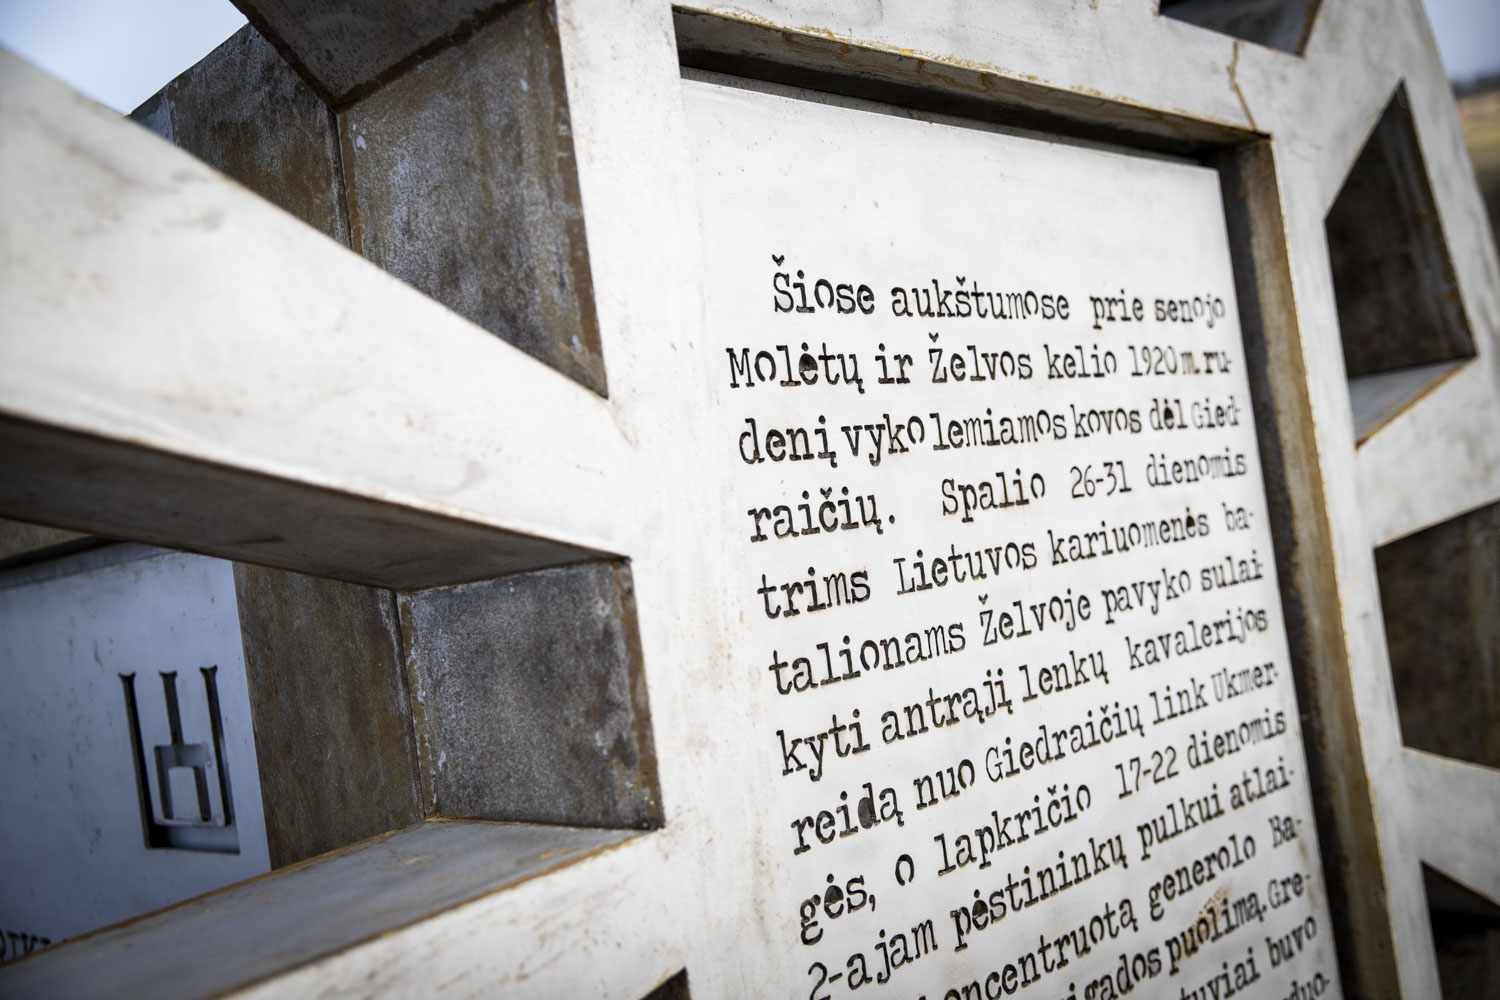 Šiose aukštumose prie senojo
Molėtų ir Želvos kelio 1920 m. ru-
denį vyko lemiamos kovos dėl Gied-
raičių. Spalio 26-31 dienomis
trims Lietuvos kariuomenės ba-
talionams Želvoje pavyko sulai-
kyti antrąjį lenkų kavalerijos
reidą nuo Giedraičių link Ukmer-
gės, o lapkričio 17-22 dienomis
2-ajam pėstininkų pulkui atlai-
koncentruotą generolo Ba-
igados puolimą. Gre-
tuviai buvo